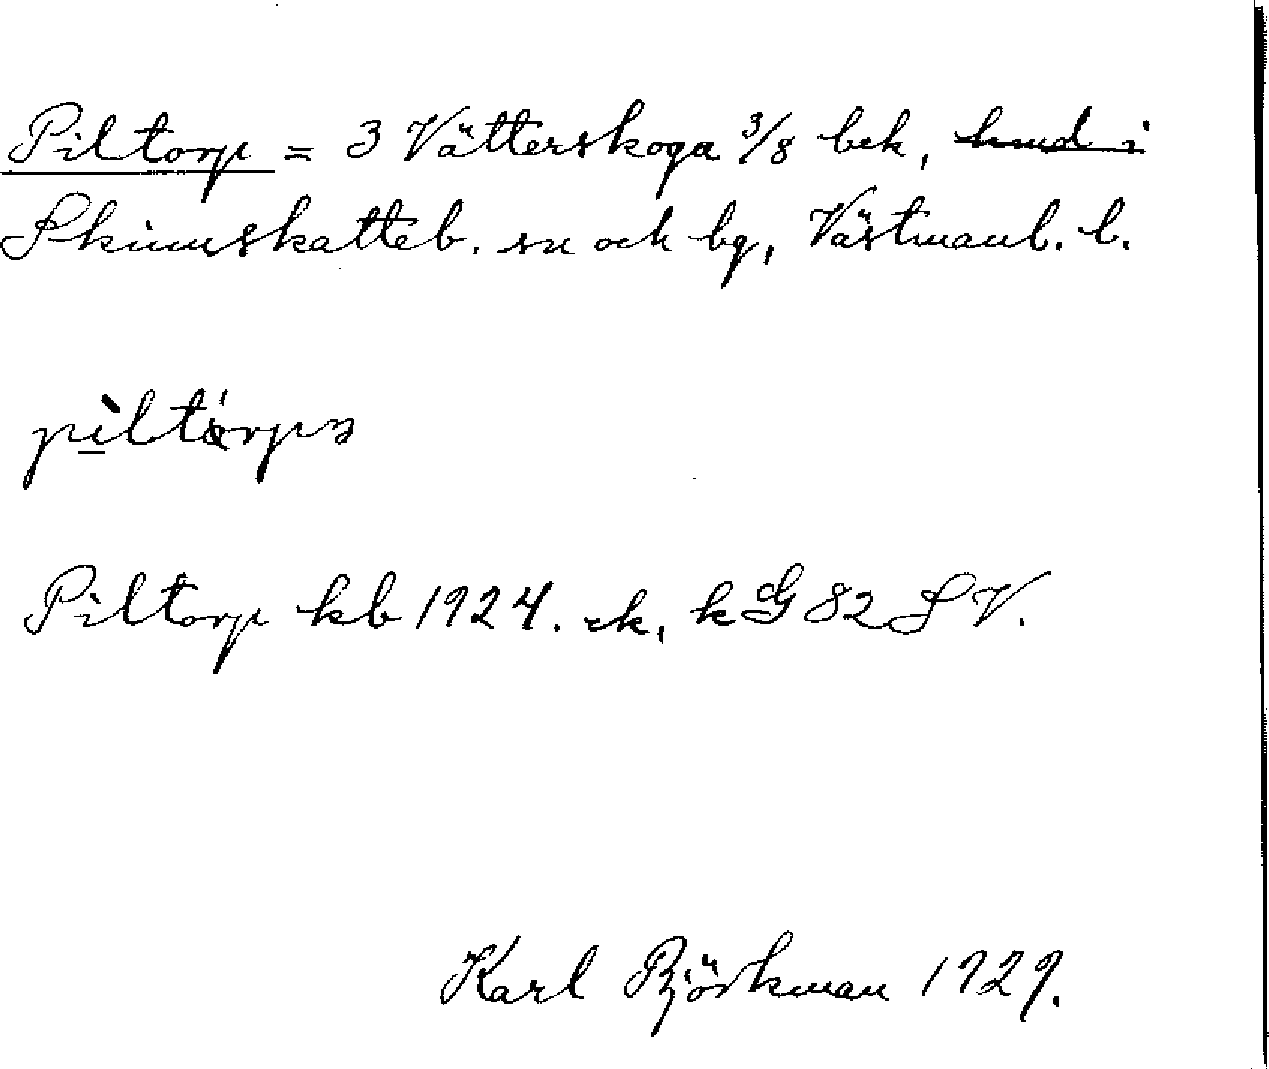 Piltorp = 3 Vätterskoga 3/8 bek,
Skinnskatteb. sn och bg, Västmanl. l.
pìltórps
Piltorp kb 1924. ek, k G 82 S V.
Karl Björkman 1929.